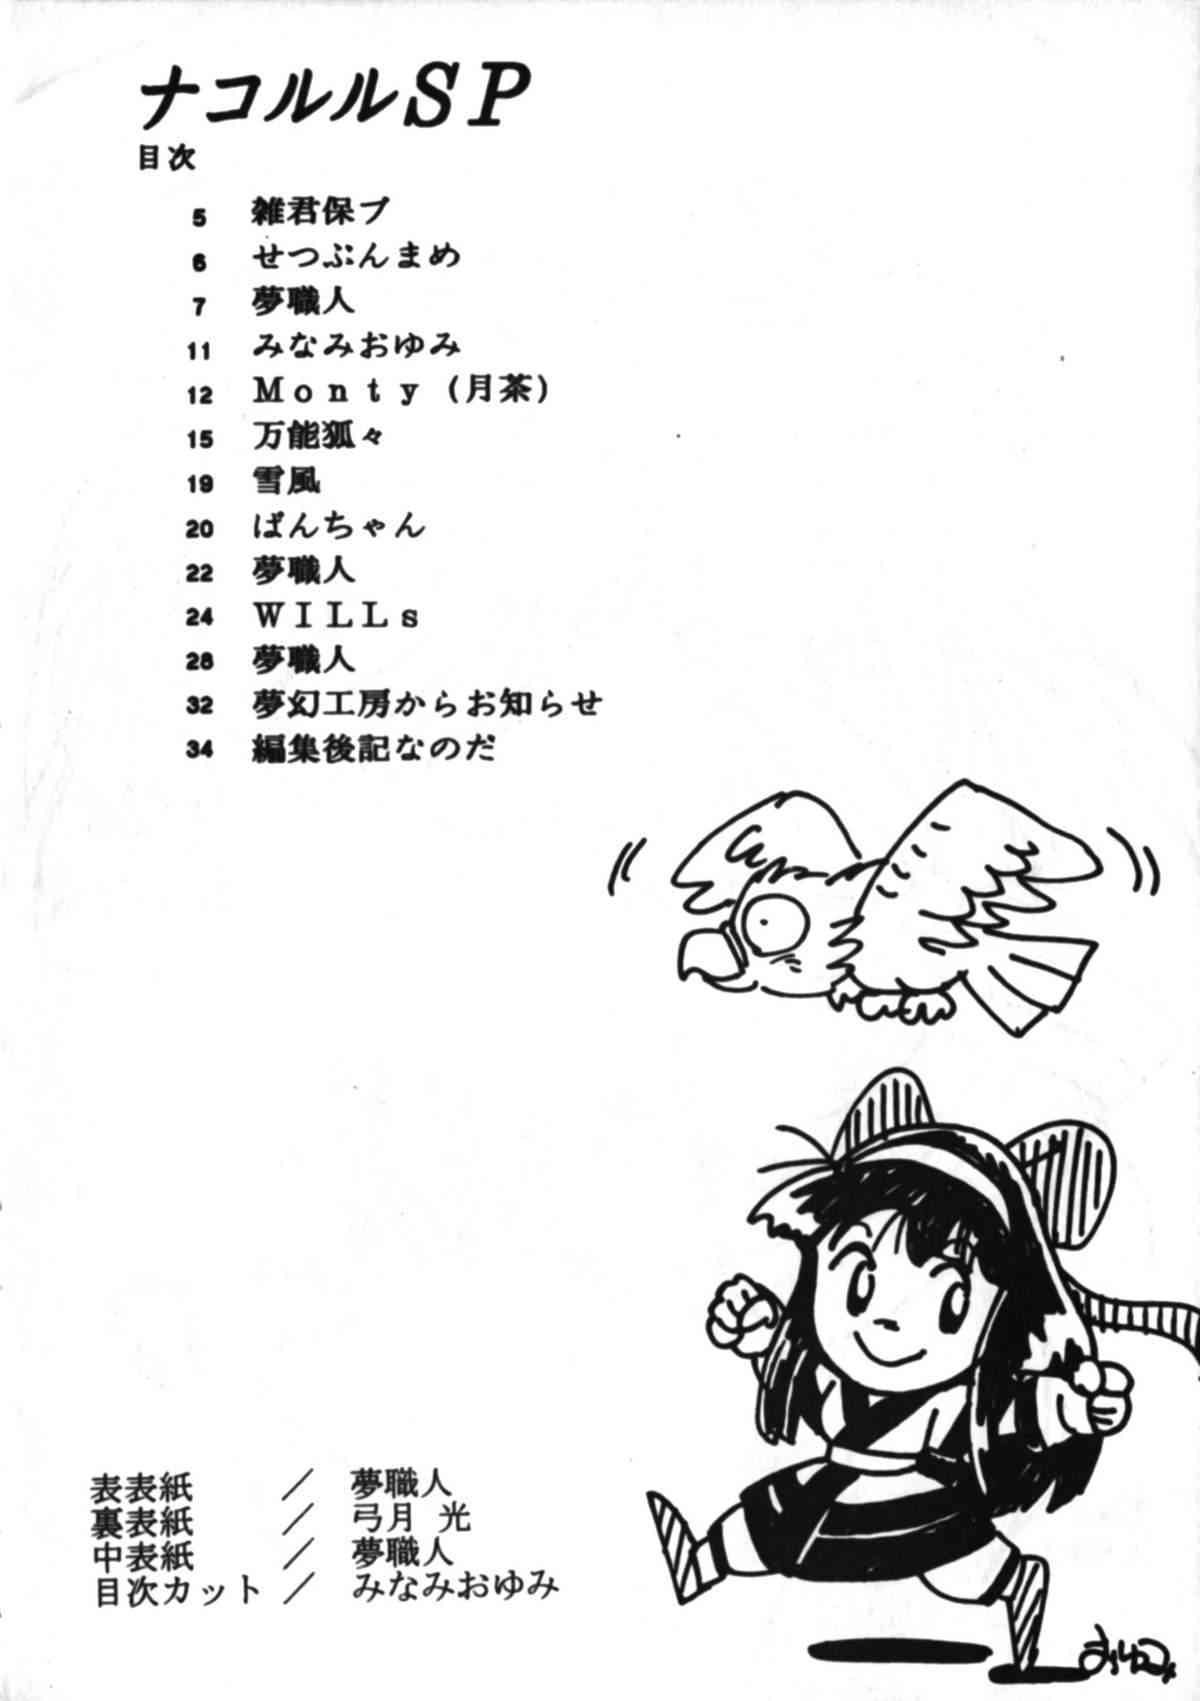 ナコルルSP
目次
5 雑君保プ
6 せつぶんまめ
7 夢職人
11 みなみおゆみ
12 Monty(月茶)
15 万能狐々
19 雪風
20 ばんちゃん
22 夢職人
24 WILLs
28 夢職人
32 夢幻工房からお知らせ
34 編集後記なのだ
表表紙 / 夢職人
裏表紙 / 弓月 光
中表紙 / 夢職人
目次カット / みなみおゆみ